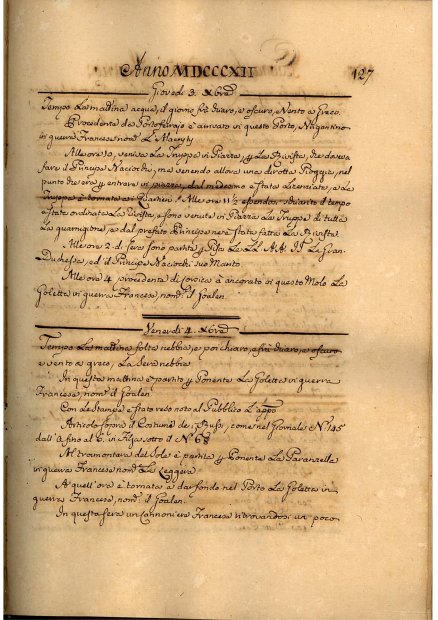 Anno MDCCCXII
127
Giovedì 3. Xbre
Tempo La mattina acqua, il giorno frè duaro, e oscuro, Vento a Greco.
Procedente da Portoferajo è arrivato in questo Porto, Brigantino
in guerra Francese nomto
Alle ore 10, venivano Truppe in Piazza, La Rivista, che doveva
fare il Principe Baciochi, ma venendo allora una dirotta Pioggia, nel
punto che era entrare in piazza, dal medesimo è Stata Licenziata, e La
Truppa è tornata ai Quartieri. Alle ore 11½ essendosi schiarito il tempo
è Stata ordinata La Rivista, e sono venute in Piazza Le Truppe di tutta
La guarnigione, e dal prefato Principe ne è Stata fatta La Rivista
Alle ore 2. di sera sono partite Pisa Le LL. AA. II. La Gran
Duchessa, ed il Principe Baciochi suo Marito
Alle ore 4 procedente di Corsica à ancorato in questo Molo La
Goletta in guerra Francese, nomta il Goalen.
Venerdì 4. Xbre
Tempo La mattina folta nebbia, e poi chiaro, a frè duaro, e oscuro
e vento a greco, La sera nebbia
In questa mattina è partito Ponente La Goletta in guerra
Francese, nomta il Goalen
Con Le Stampe è Stato reso noto al Pubblico L'appo
Articolo sopra il Costume de Russi, come nel Giornale N° 145
dall' A fino al C. in filza sotto il N° 68
Al tramontare del Sole è partita Ponente La Paranzella
in guerra Francese nomta La Leggera
A quell'ora è tornata a dar fondo nel Porto La Goletta in
guerra Francese, nomta il Goalen.
In questa sera un Cannoniera Francese ritrovandosi un poco